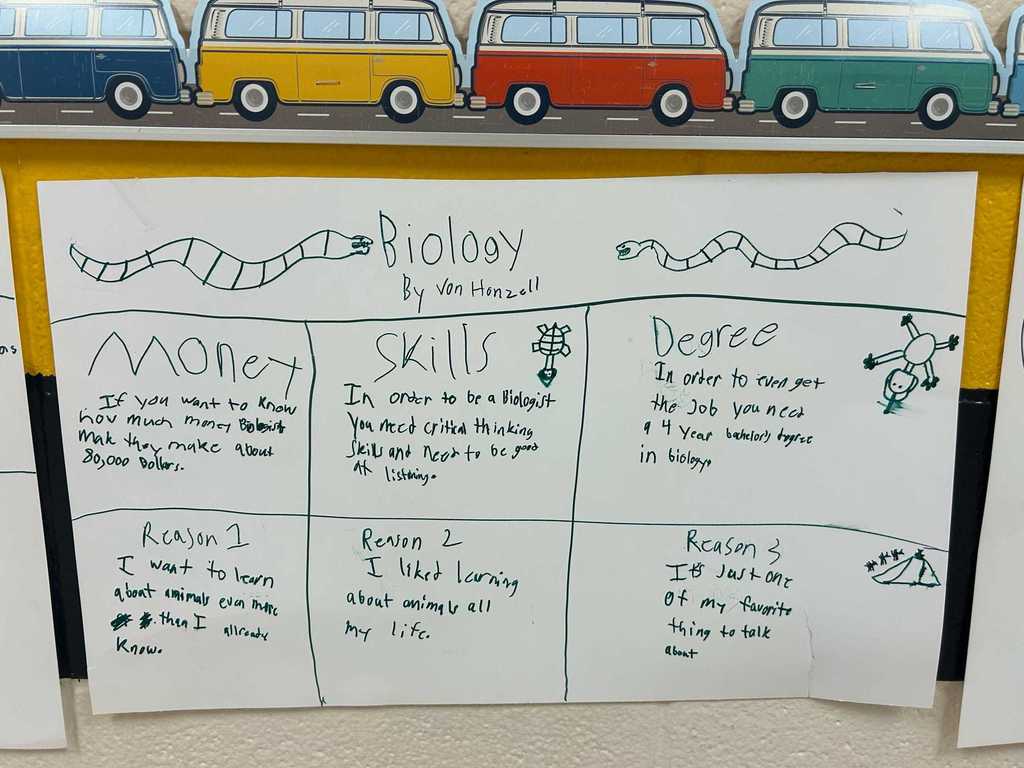 Biology
By Von Honzell
Money
If you want to know
how much money Biologist
mak they make about
80,000 Dollars.
Skills
In order to be a Biologist
You need critical thinking
skills and need to be good
At listning.
Degree
In order to even get
the Job you need
a 4 year bachelor's degree
in biology.
Reason 1
I want to learn
about animals even more
than I allready
know.
Reason 2
I liked learning
about animals all
my life.
Reason 3
It's Just one
of my favorite
thing to talk
about